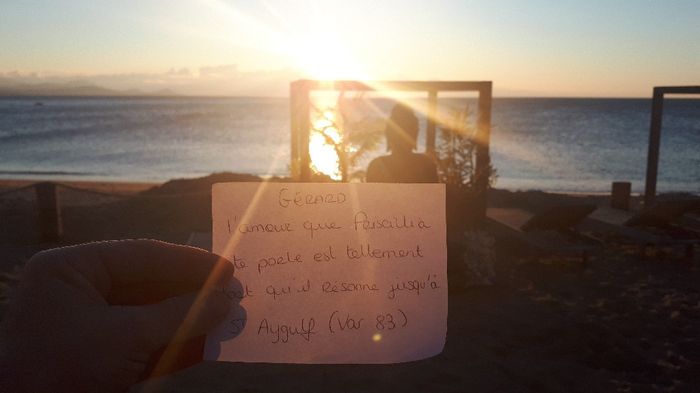 GÉRARD
l'amour que Priscillia
te porte est tellement
fort qu'il résonne jusqu'à
St Aygulf (Var 83)